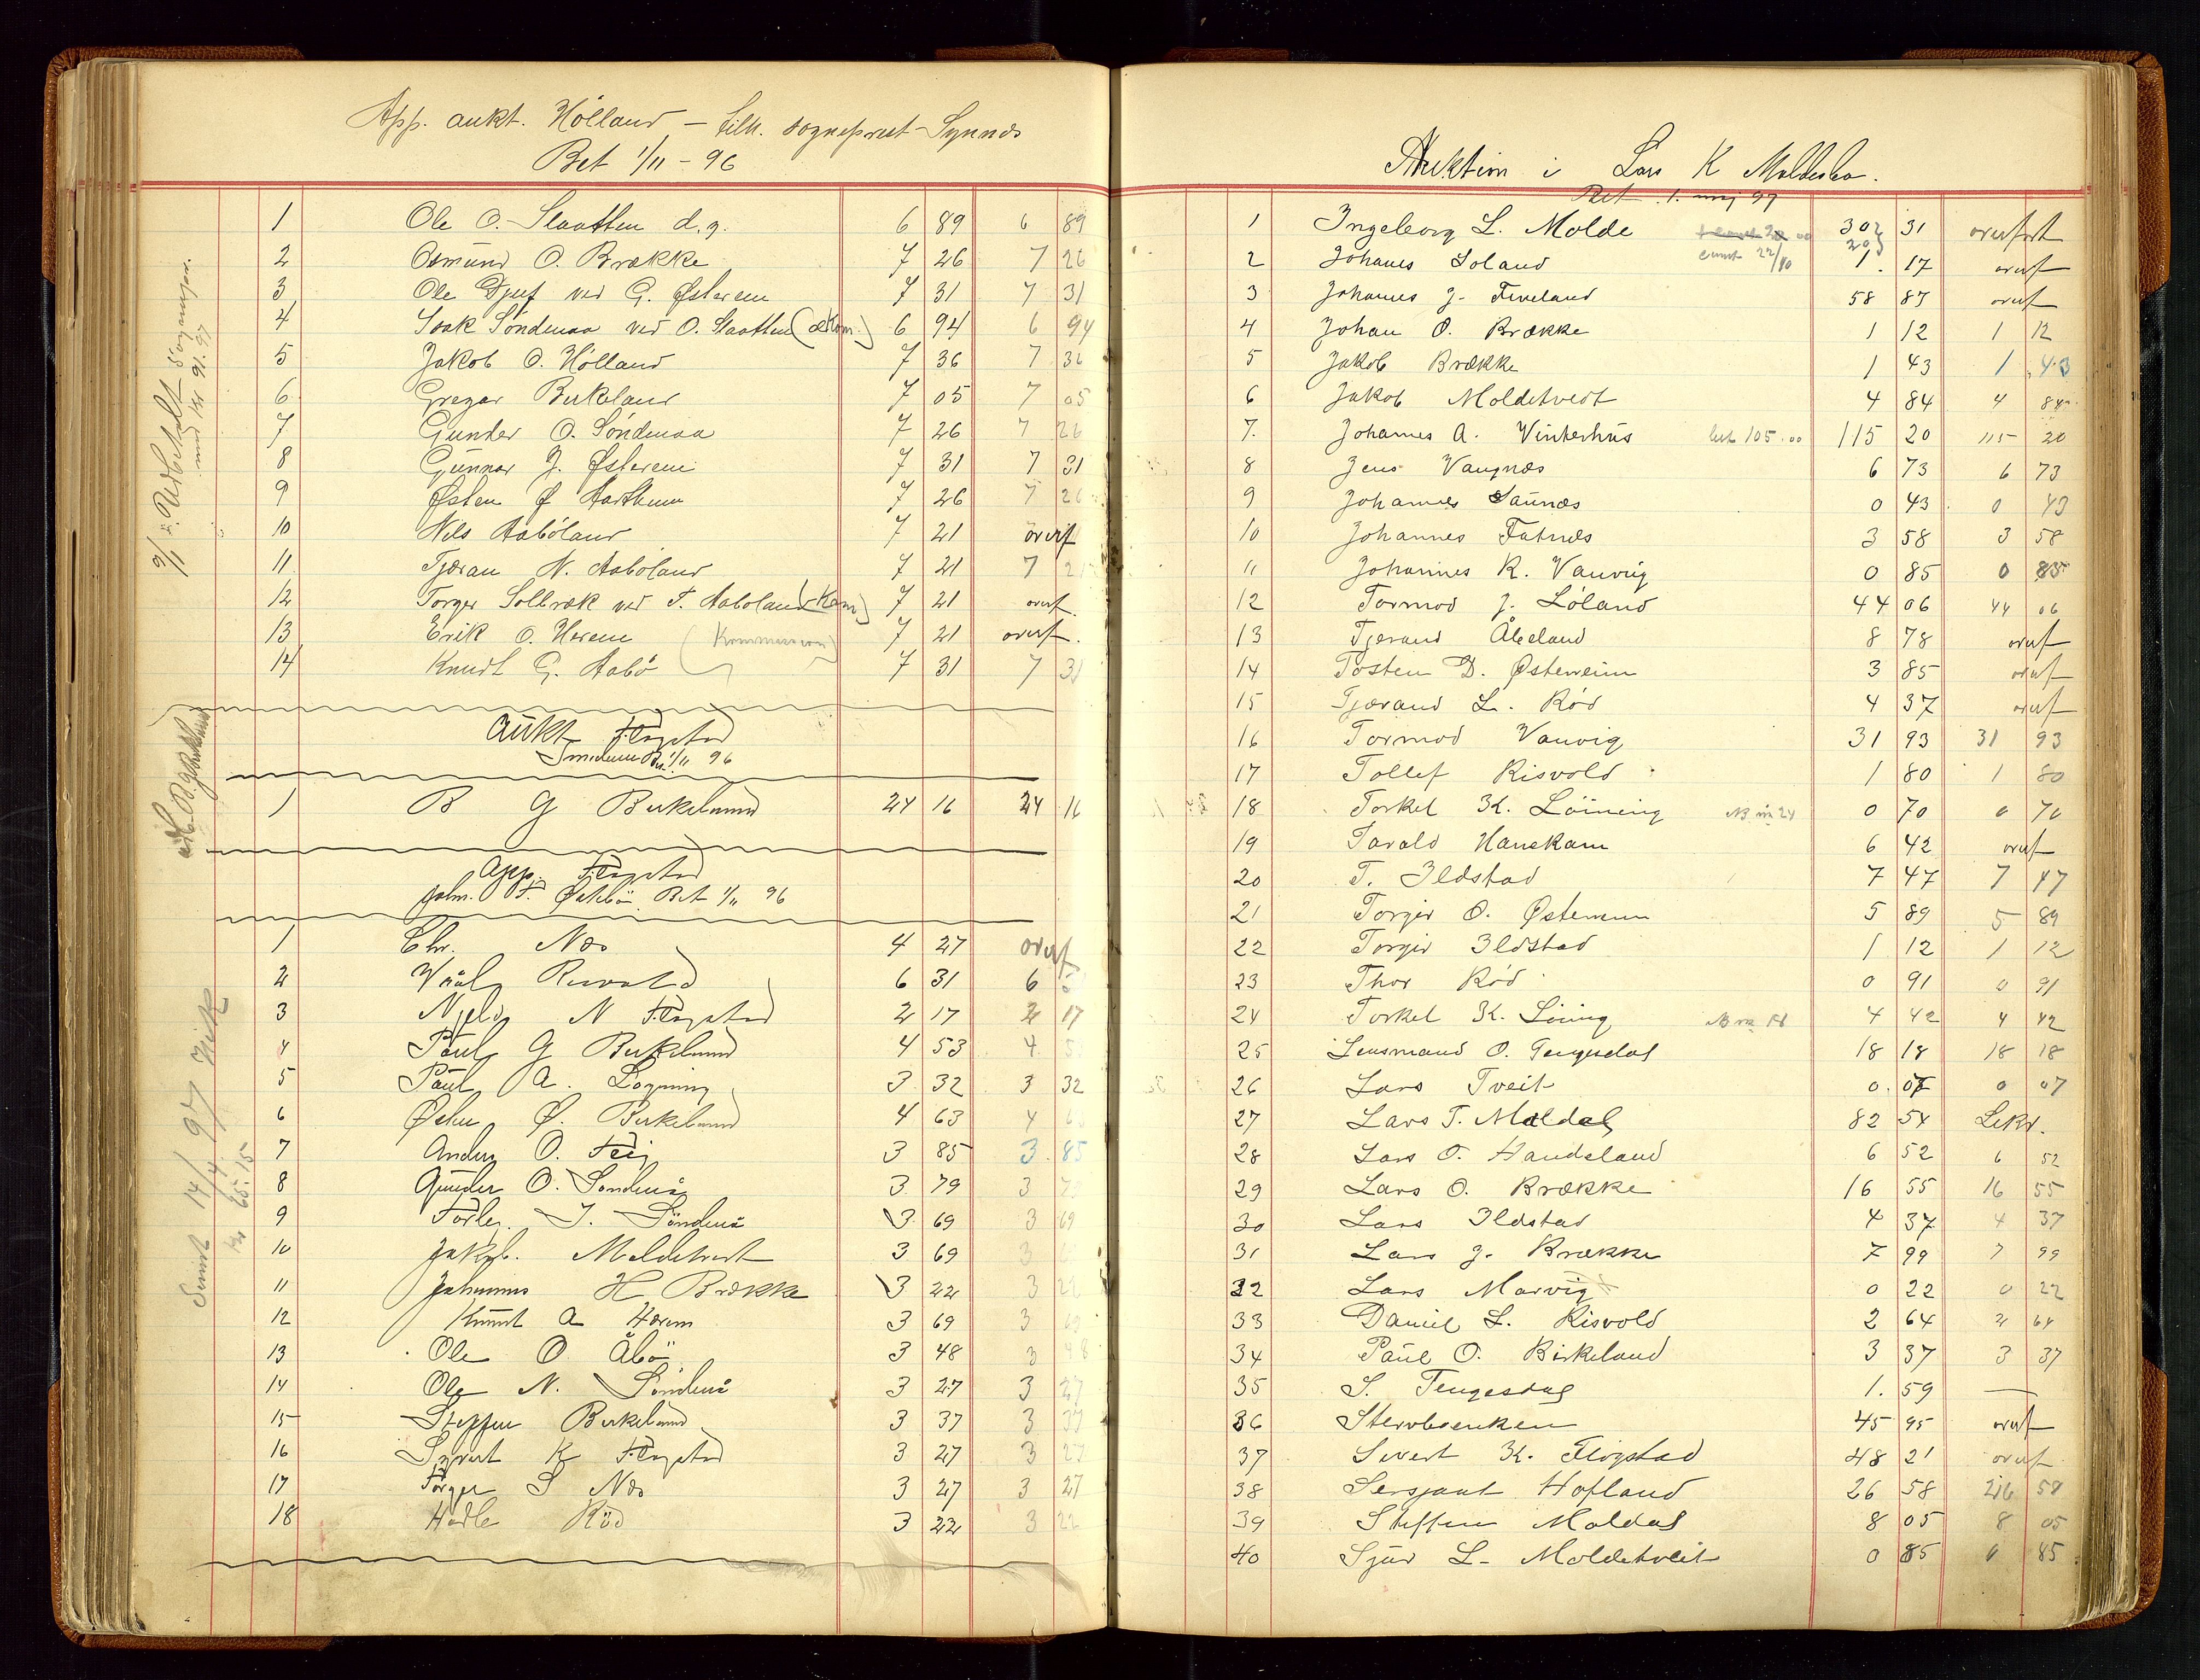 App. aukt. Hölland – tilh. sogneprest Synnes
Bet 1/11 – 96
1 Ole O. Slaatten d.y. 6 89 6 89
2 Osmund O. Brække 7 26 7 26
3 Ole Djuf ved G. Østerem 7 31 7 31
4 Isak Söndenaa ved O. Slaatten 6 94 6 94
5 Jakob O. Hölland 7 36 7 36
6 Gregar Birkeland 7 05 7 05
7 Gunder O. Söndenaa 7 26 7 26
8 Gunnar J. Østerem 7 31 7 31
9 Østen Ø 7 26 7 26
10 Nils Aaböland 7 21 overf
11 Tjæran N. Aaböland 7 21 7 21
12 Torger Solbræk ved T. Aaboland (Kom) 7 21 overf.
13 Erik O. Herem (Kommission) 7 21 overf.
14 Knudt G. Aabö 7 31 7 31
Aukt Flogstad
1/11 96
1 B G Birkeland 24 16 24 16
App. Flogstad
Bet 1/11 96
1 Chr. Næs 4 27 overf
2 6 31 6
3 N Flogstad 2 17 2 17
4 Paul G Birkeland 4 53 4 5
5 Paul A. Logning 3 32 3 32
6 Østen Ø. Birkeland 4 63 4 63
7 Anders O. 3 85 3.85
8 Gunder O. Söndenå 3 79 3 79
9 J. Söndenå 3 69 3 69
10 Jakob. Moldetveit 3 69 3
11 Johannes H Brække 3 22 3 22
12 Knudt A Herem 3 69 3 69
13 Ole O Åbö 3 48 3 48
14 Ole N. Söndenå 3 27 3 27
15 Steffen Birkeland 3 37 3 37
16 Syvert K Flogstad 3 27 3 27
17 Torger S Næs 3 27 3 27
18 Hadle Röd 3 22 3 22
9/11
Sendt 14/4 97
kr 65.15
Auktion i Lars K
Bet. 1. maj 97
1 Ingeborg L. Molde 302 31 overfört
2 Johanes Loland 1. 17 overf
3 Johannes J. Fiveland 58 87 overf
4 Johan O. Brække 1 12 1 12
5 Jakob Brække 1 43 1 43
6 Jakob Moldetvedt 4 84 4 84
7. Johannes A. Vinterhus 105.00 115 20 115 20
8 Jens Vangnæs 6 73 6 73
9 Johannes Saunæs 0 43 0 43
10 Johannes Fatnæs 3 58 3 58
11 Johannes R. Vanvig 0 85 0 85
12 Tormod J. Löland 44 06 44 06
13 Tjerand Åbeland 8 78 overf
14 Tosten D. Østerreim 3 85 overf
15 Tjærand L. Röd 4 37 overf
16 Tormod Vanvig 31 93 31 93
17 Tollef Risvold 1 80 1 80
18 Torkel K. Löining NB nr 24 0 70 0 70
19 Tarald Hanekam 6 42 overf
20 T. Ildstad 7 47 7 47
21 Torger O. Østerreim 5 89 5 89
22 Torger Ildstad 1 12 1 12
23 Thor Röd 0 91 0 91
24 Torkel K. Löning NB nr 18 4 42 4 42
25 Lensmand O. Tengesdal 18 18 18 18
26 Lars Tveit 0.07 0 07
27 Lars T. Moldal 82 54
28 Lars O. Handeland 6 52 6 52
29 Lars O. Brække 16 55 16 55
30 Lars Ildstad 4 37 4 37
31 Lars J. Brække 7 99 7 99
32 Lars Marvig 0 22 0 22
33 Daniel L. Risvold 2 64 2 64
34 Paul O. Birkeland 3 37 3 37
35 S. Tengesdal 1. 59 —
36 Stervboenken 45 95 overf
37 Sivert K. Flögstad 48 21 overf
38 Sersjant Hofland 26 58 26 58
39 Steffen Moldal 8 05 8 05
40 Sjur L. Moldetveit 0 85 0 85